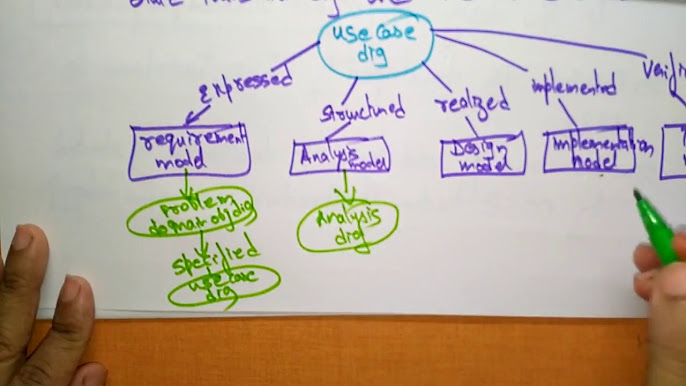 use case
dig
expressed
structured
realized
implemented
requirement
model
Analysis
model
Design
model
implementation
model
Problem
domain obj dig
specified
use case
dig
Analysis
dig